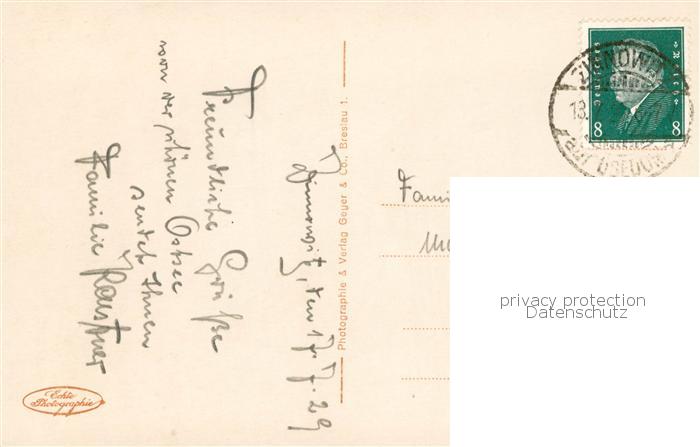 Zinnowitz, den 17. 7. 29
Freundliche Grüße
von der schönen Ostsee
sendet Ihnen
Familie
Photographie & Verlag Geyer & Co., Breslau 1.
Echte
Photographie
Deutsches Reich
8 8
ZINNOWITZ
18.
auf USEDOM
Fami
privacy protection
Datenschutz